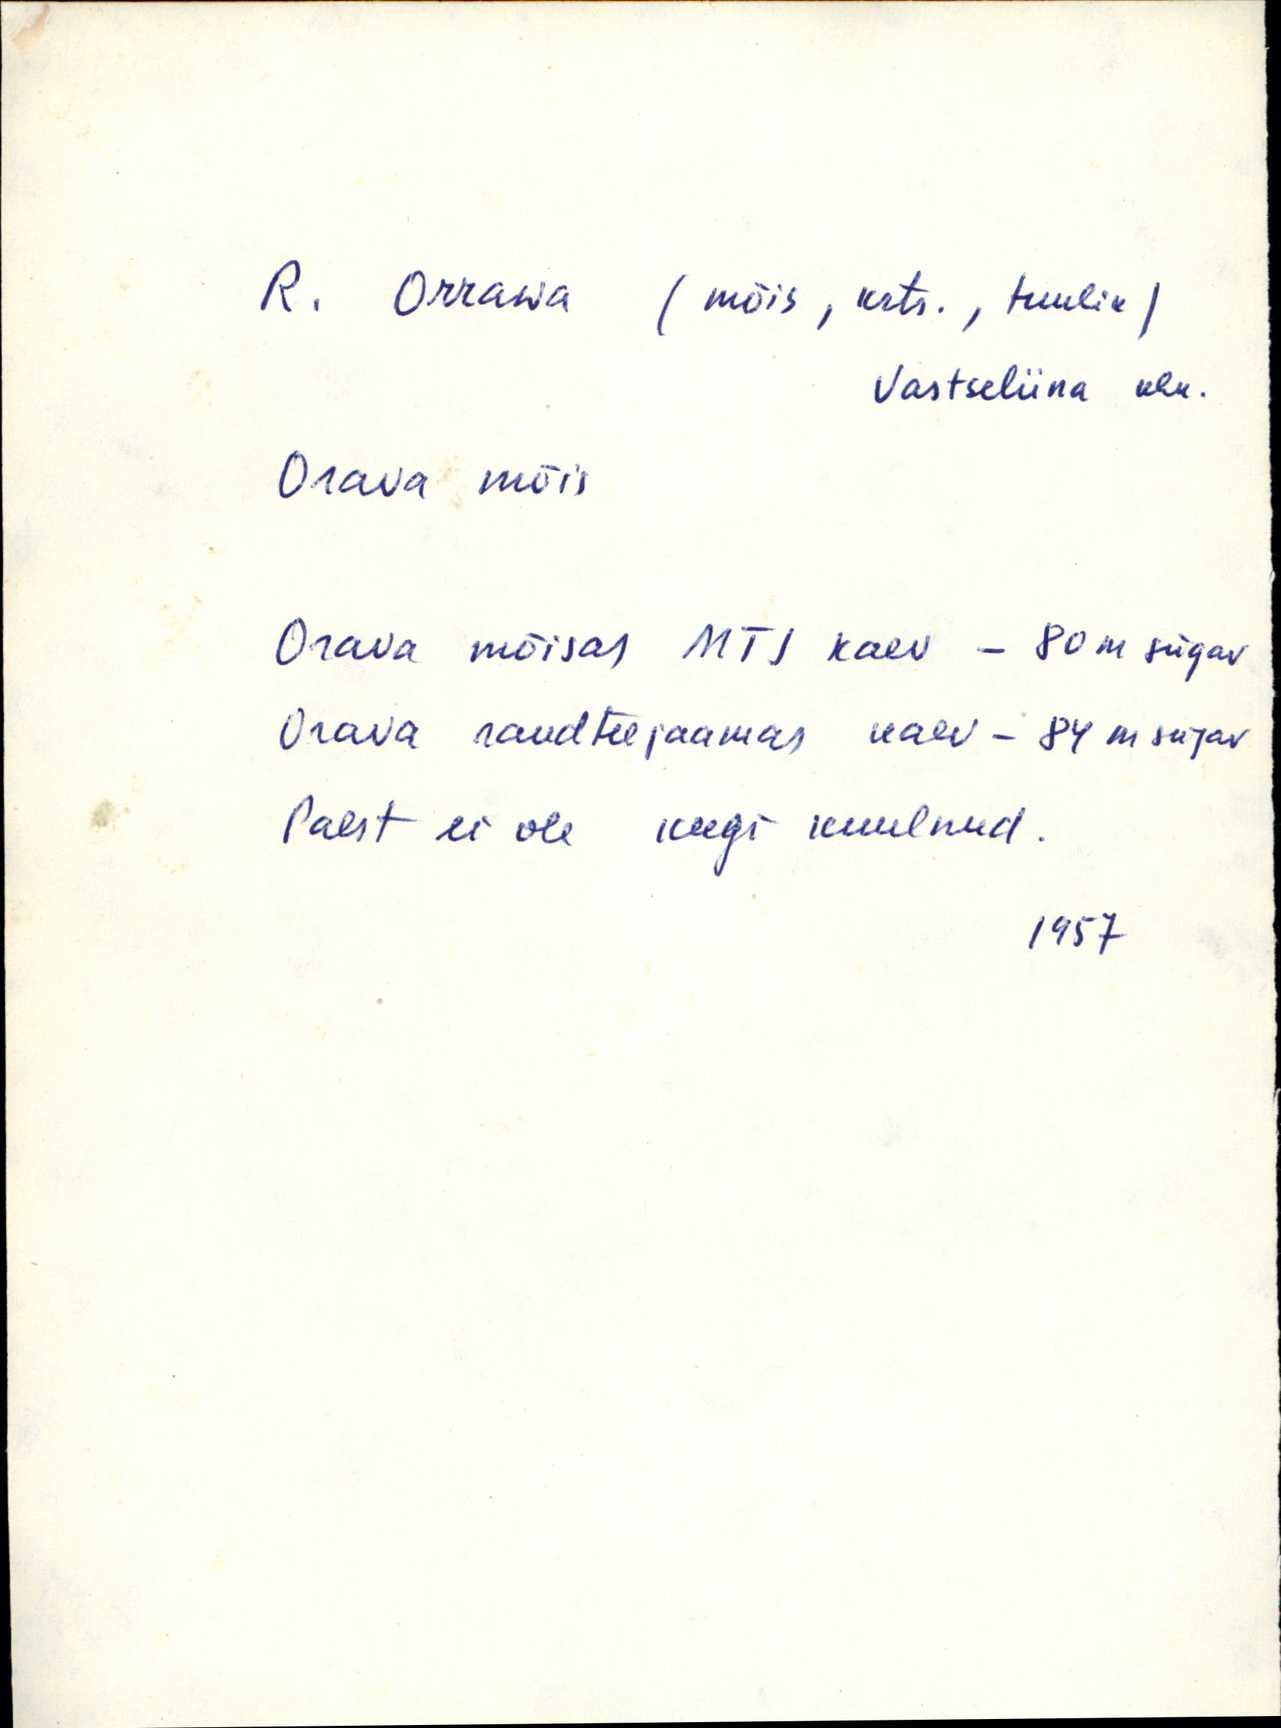 R. Orrawa (mõis, krts., tuulik)
Vastseliina khk.
Orava mõis
Orava mõisas MTJ kaev – 80 m sügav
Orava raudteejaamas kaev – 84 m sügav
Paest ei ole keegi kuulnud.
1957